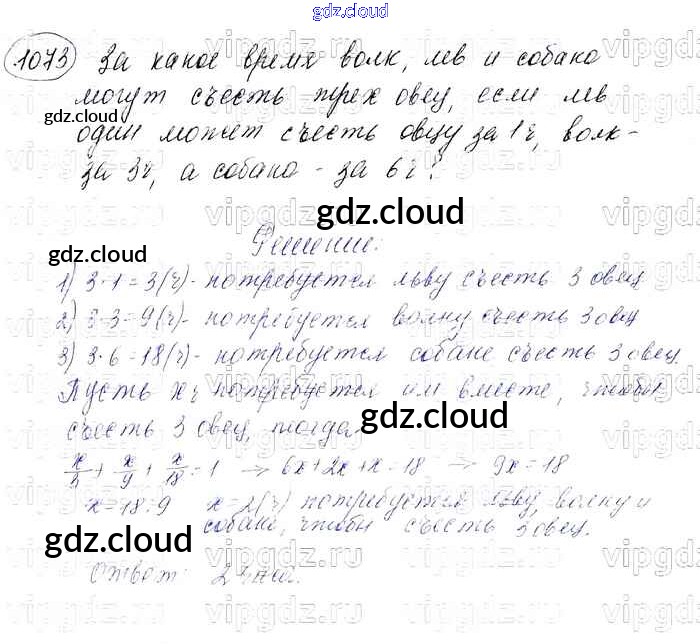 gdz.cloud
1073 За какое время волк, лев и собака
могут съесть трех овец, если лев
gdz.cloud
один может съесть овцу за 1ч, волк-
за 3ч, а собака - за 6ч?
gdz.cloud
Решение:
gdz.cloud
1) 3·1=3(ч)- потребуется льву съесть 3 овец
2) 3·3=9(ч)- потребуется волку съесть 3 овец
3) 3·6=18(ч)- потребуется собаке съесть 3 овец.
Пусть x ч потребуется им вместе, чтобы
gdz.cloud
съесть 3 овец, тогда
x/3 + x/9 + x/18 = 1 → 6x+2x+x=18 → 9x=18
x=18:9 x=2(ч) потребуется льву, волку и
собаке, чтобы съесть 3 овец.
gdz.cloud
gdz.cloud
Ответ: 2 часа.